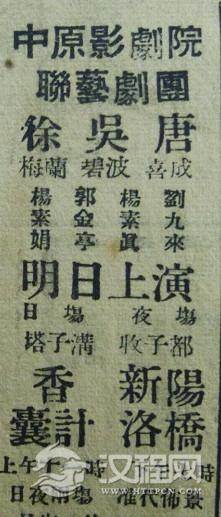 中原影劇院
聯藝劇團
徐 吳 唐
梅蘭 碧波 喜成
楊素娟 郭金亭 楊素真 劉九來
明日上演
日場 夜場
塔子溝 收子都
香囊計 新洛陽橋
上午十 時
日夜兩場 准代佈景
汉程网
WWW.HTTPCN.COM